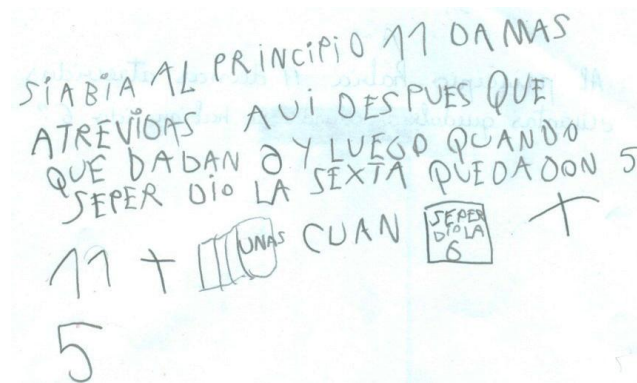 SIABIA AL PRINCIPIO 11 DAMAS
ATREVIDAS AUI DESPUES QUE
QUE DABAN Y LUEGO QUANDO
SEPER DIO LA SEXTA QUEDADON 5
11 + UNAS CUAN SEPER DIO LA 6 +
5